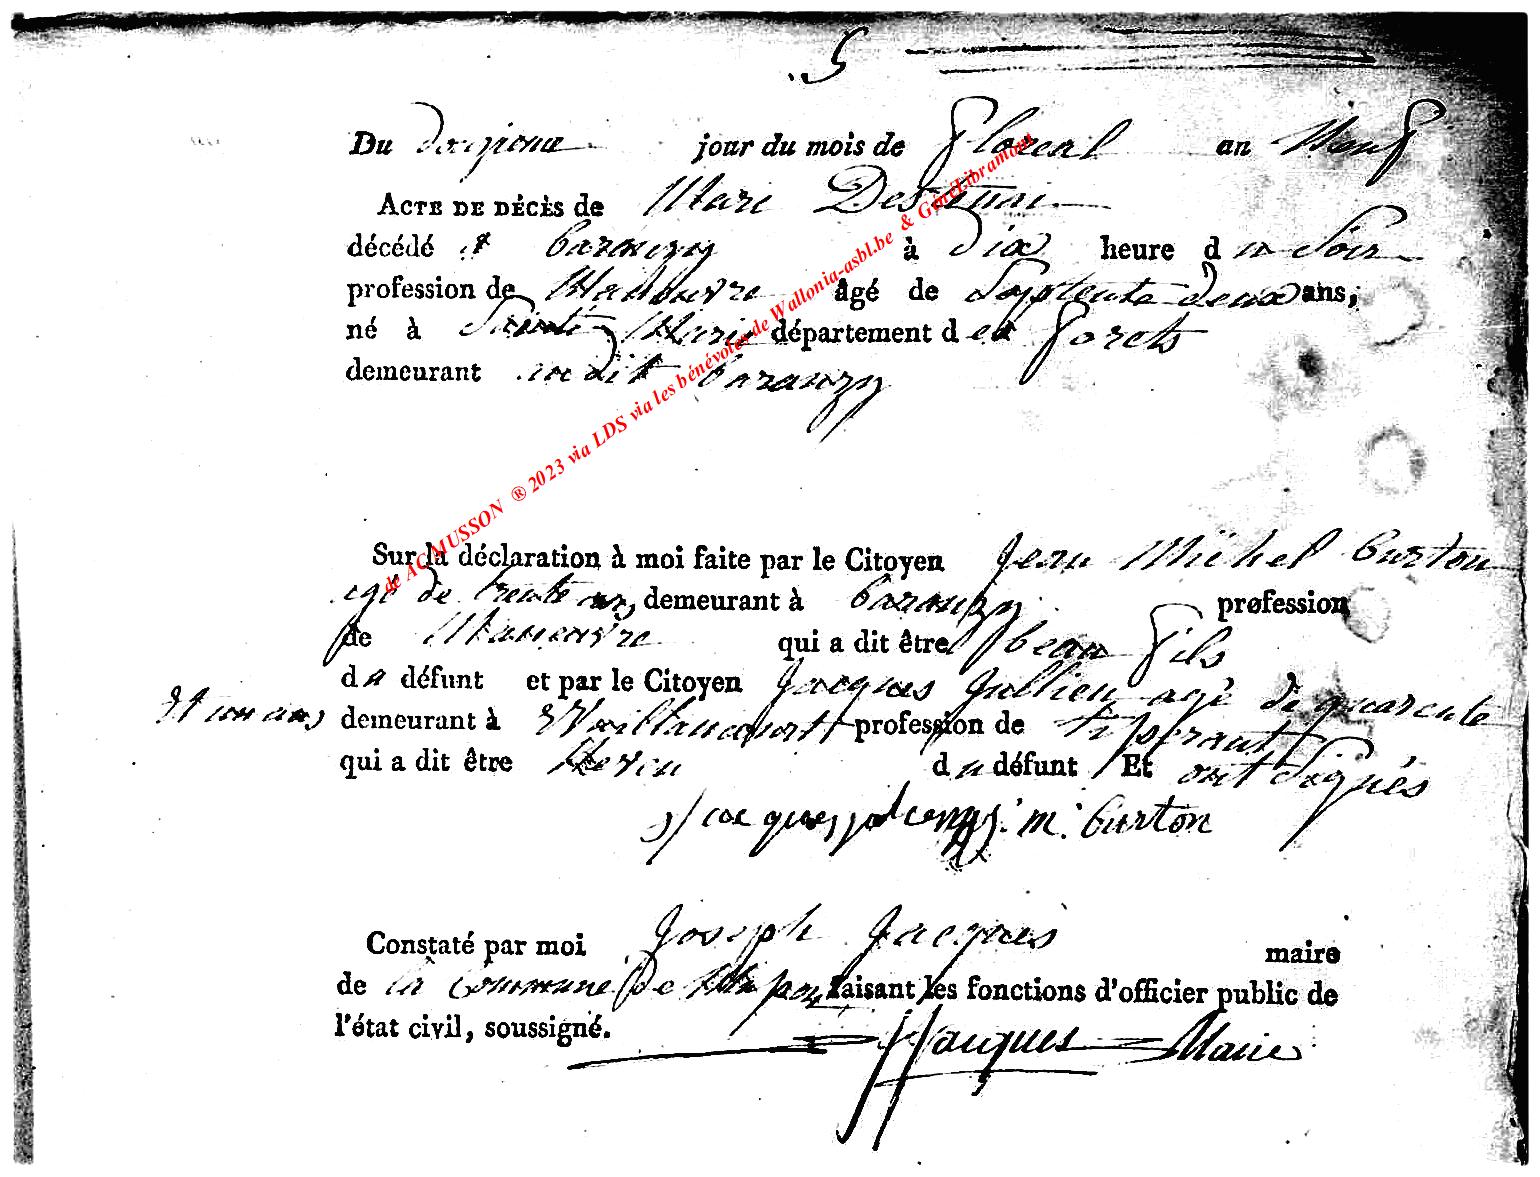 5
Du douzieme jour du mois de floreal an Neuf
ACTE DE DÉCÈS de Mari
décédé a baranzy à dix heure du Soir
profession de Maneuvre âgé de Soptente deux ans,
né à Sainte Marie département des forets
demeurant au dit baranzy
Sur la déclaration à moi faite par le Citoyen Jean Michel Curton
agé de trente ans, demeurant à baranzy profession
de Maneuvre qui a dit être beau fils
du défunt et par le Citoyen Jacques Jullien agé de quarente
Et un ans demeurant à Willancourt profession de
qui a dit être Neveu du défunt Et ont Signés
j: m: Curton
Constaté par moi Joseph Jacques maire
de la Commune de faisant les fonctions d'officier public de
l'état civil, soussigné.
JJacques Maire
de AC MUSSON ® 2023 via LDS via les bénévoles de Wallonia-asbl.be & GénéLibramont